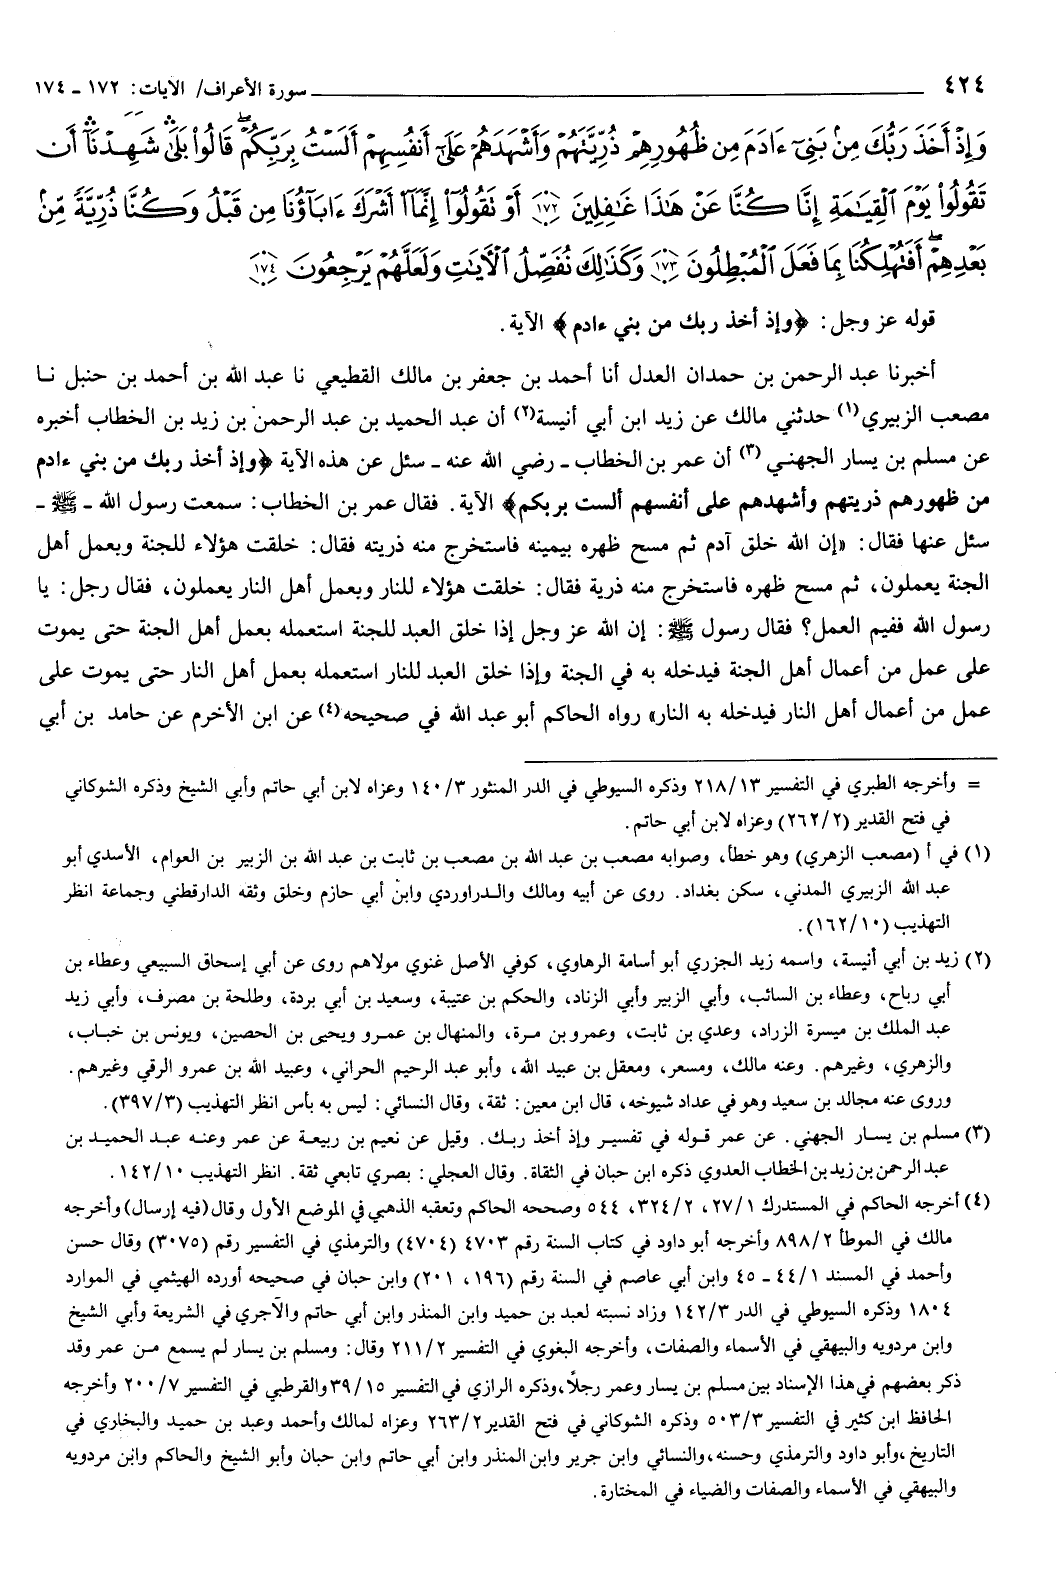 ٤٢٤ سورة الأعراف/ الآيات: ١٧٢ ـ ١٧٤
وَإِذْ أَخَذَ رَبُّكَ مِنۢ بَنِىٓ ءَادَمَ مِن ظُهُورِهِمْ ذُرِّيَّتَهُمْ وَأَشْهَدَهُمْ عَلَىٰٓ أَنفُسِهِمْ أَلَسْتُ بِرَبِّكُمْ ۖ قَالُوا۟ بَلَىٰ ۛ شَهِدْنَآ ۛ أَن
تَقُولُوا۟ يَوْمَ ٱلْقِيَٰمَةِ إِنَّا كُنَّا عَنْ هَٰذَا غَٰفِلِينَ ١٧٢ أَوْ تَقُولُوٓا۟ إِنَّمَآ أَشْرَكَ ءَابَآؤُنَا مِن قَبْلُ وَكُنَّا ذُرِّيَّةً مِّنۢ
بَعْدِهِمْ ۖ أَفَتُهْلِكُنَا بِمَا فَعَلَ ٱلْمُبْطِلُونَ ١٧٣ وَكَذَٰلِكَ نُفَصِّلُ ٱلْـَٔايَٰتِ وَلَعَلَّهُمْ يَرْجِعُونَ ١٧٤
قوله عز وجل: ﴿وإذ أخذ ربك من بني ءادم﴾ الآية.
أخبرنا عبد الرحمن بن حمدان العدل أنا أحمد بن جعفر بن مالك القطيعي نا عبد الله بن أحمد بن حنبل نا
مصعب الزبيري(١) حدثني مالك عن زيد ابن أبي أنيسة(٢) أن عبد الحميد بن عبد الرحمن بن زيد بن الخطاب أخبره
عن مسلم بن يسار الجهني(٣) أن عمر بن الخطاب ـ رضي الله عنه ـ سئل عن هذه الآية ﴿وإذ أخذ ربك من بني ءادم
من ظهورهم ذريتهم وأشهدهم على أنفسهم ألست بربكم﴾ الآية. فقال عمر بن الخطاب: سمعت رسول الله ـ ﷺ ـ
سئل عنها فقال: «إن الله خلق آدم ثم مسح ظهره بيمينه فاستخرج منه ذريته فقال: خلقت هؤلاء للجنة وبعمل أهل
الجنة يعملون، ثم مسح ظهره فاستخرج منه ذرية فقال: خلقت هؤلاء للنار وبعمل أهل النار يعملون، فقال رجل: يا
رسول الله ففيم العمل؟ فقال رسول ﷺ: إن الله عز وجل إذا خلق العبد للجنة استعمله بعمل أهل الجنة حتى يموت
على عمل من أعمال أهل الجنة فيدخله به في الجنة وإذا خلق العبد للنار استعمله بعمل أهل النار حتى يموت على
عمل من أعمال أهل النار فيدخله به النار» رواه الحاكم أبو عبد الله في صحيحه(٤) عن ابن الأخرم عن حامد بن أبي
= وأخرجه الطبري في التفسير ٢١٨/١٣ وذكره السيوطي في الدر المنثور ١٤٠/٣ وعزاه لابن أبي حاتم وأبي الشيخ وذكره الشوكاني
في فتح القدير (٢٦٢/٢) وعزاه لابن أبي حاتم.
(١) في أ (مصعب الزهري) وهو خطأ، وصوابه مصعب بن عبد الله بن مصعب بن ثابت بن عبد الله بن الزبير بن العوام، الأسدي أبو
عبد الله الزبيري المدني، سكن بغداد. روى عن أبيه ومالك والدراوردي وابن أبي حازم وخلق وثقه الدارقطني وجماعة انظر
التهذيب (١٦٢/١٠).
(٢) زيد بن أبي أنيسة، واسمه زيد الجزري أبو أسامة الرهاوي، كوفي الأصل غنوي مولاهم روى عن أبي إسحاق السبيعي وعطاء بن
أبي رباح، وعطاء بن السائب، وأبي الزبير وأبي الزناد، والحكم بن عتيبة، وسعيد بن أبي بردة، وطلحة بن مصرف، وأبي زيد
عبد الملك بن ميسرة الزراد، وعدي بن ثابت، وعمرو بن مرة، والمنهال بن عمرو ويحيى بن الحصين، ويونس بن خباب،
والزهري، وغيرهم. وعنه مالك، ومسعر، ومعقل بن عبيد الله، وأبو عبد الرحيم الحراني، وعبيد الله بن عمرو الرقي وغيرهم.
وروى عنه مجالد بن سعيد وهو في عداد شيوخه، قال ابن معين: ثقة، وقال النسائي: ليس به بأس انظر التهذيب (٣٩٧/٣).
(٣) مسلم بن يسار الجهني. عن عمر قوله في تفسير وإذ أخذ ربك. وقيل عن نعيم بن ربيعة عن عمر وعنه عبد الحميد بن
عبد الرحمن بن زيد بن الخطاب العدوي ذكره ابن حبان في الثقاة. وقال العجلي: بصري تابعي ثقة. انظر التهذيب ١٤٢/١٠.
(٤) أخرجه الحاكم في المستدرك ٢٧/١، ٣٢٤/٢، ٥٤٤ وصححه الحاكم وتعقبه الذهبي في الموضع الأول وقال (فيه إرسال) وأخرجه
مالك في الموطأ ٨٩٨/٢ وأخرجه أبو داود في كتاب السنة رقم ٤٧٠٣ (٤٧٠٤) والترمذي في التفسير رقم (٣٠٧٥) وقال حسن
وأحمد في المسند ٤٤/١ ـ ٤٥ وابن أبي عاصم في السنة رقم (١٩٦، ٢٠١) وابن حبان في صحيحه أورده الهيثمي في الموارد
١٨٠٤ وذكره السيوطي في الدر ١٤٢/٣ وزاد نسبته لعبد بن حميد وابن المنذر وابن أبي حاتم والآجري في الشريعة وأبي الشيخ
وابن مردويه والبيهقي في الأسماء والصفات، وأخرجه البغوي في التفسير ٢١١/٢ وقال: ومسلم بن يسار لم يسمع من عمر وقد
ذكر بعضهم في هذا الإسناد بين مسلم بن يسار وعمر رجلاً، وذكره الرازي في التفسير ٣٩/١٥ والقرطبي في التفسير ٢٠٠/٧ وأخرجه
الحافظ ابن كثير في التفسير ٥٠٣/٣ وذكره الشوكاني في فتح القدير ٢٦٣/٢ وعزاه لمالك وأحمد وعبد بن حميد والبخاري في
التاريخ، وأبو داود والترمذي وحسنه، والنسائي وابن جرير وابن المنذر وابن أبي حاتم وابن حبان وأبو الشيخ والحاكم وابن مردويه
والبيهقي في الأسماء والصفات والضياء في المختارة.